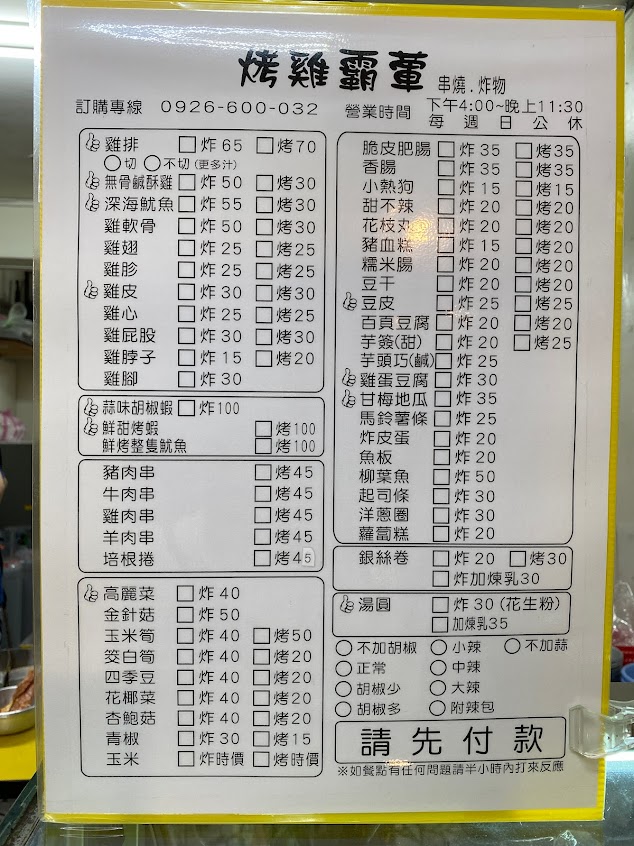 烤雞霸葷 串燒.炸物
訂購專線 0926-600-032 營業時間 下午4:00~晚上11:30
每週日公休
雞排 □炸65 □烤70
○切 ○不切(更多汁)
無骨鹹酥雞 □炸50 □烤30
深海魷魚 □炸55 □烤30
雞軟骨 □炸50 □烤30
雞翅 □炸25 □烤25
雞胗 □炸25 □烤25
雞皮 □炸30 □烤30
雞心 □炸25 □烤25
雞屁股 □炸30 □烤30
雞脖子 □炸15 □烤20
雞腳 □炸30
蒜味胡椒蝦 □炸100
鮮甜烤蝦 □烤100
鮮烤整隻魷魚 □烤100
豬肉串 □烤45
牛肉串 □烤45
雞肉串 □烤45
羊肉串 □烤45
培根捲 □烤45
高麗菜 □炸40
金針菇 □炸50
玉米筍 □炸40 □烤50
筊白筍 □炸40 □烤20
四季豆 □炸40 □烤20
花椰菜 □炸40 □烤20
杏鮑菇 □炸40 □烤20
青椒 □炸30 □烤15
玉米 □炸時價 □烤時價
脆皮肥腸 □炸35 □烤35
香腸 □炸35 □烤35
小熱狗 □炸15 □烤15
甜不辣 □炸20 □烤20
花枝丸 □炸20 □烤20
豬血糕 □炸15 □烤20
糯米腸 □炸20 □烤20
豆干 □炸20 □烤20
豆皮 □炸25 □烤25
百頁豆腐 □炸20 □烤20
芋簽(甜) □炸20 □烤25
芋頭巧(鹹) □炸25
雞蛋豆腐 □炸30
甘梅地瓜 □炸35
馬鈴薯條 □炸25
炸皮蛋 □炸20
魚板 □炸20
柳葉魚 □炸50
起司條 □炸30
洋蔥圈 □炸30
蘿蔔糕 □炸20
銀絲卷 □炸20 □烤30
□炸加煉乳30
湯圓 □炸30(花生粉)
□加煉乳35
○不加胡椒 ○小辣 ○不加蒜
○正常 ○中辣
○胡椒少 ○大辣
○胡椒多 ○附辣包
請先付款
※如餐點有任何問題請半小時內打來反應